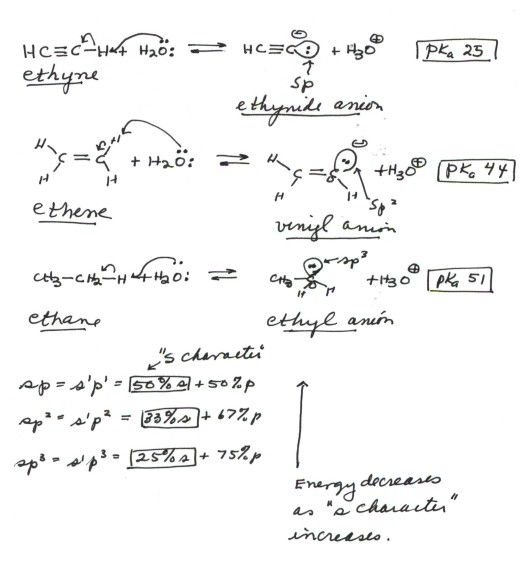 HC≡C-H + H₂O: ⇌ HC≡C:⊖ + H₃O⊕ pKa 25
ethyne
sp
ethynide anion
H H ⊖
C=C + H₂O: ⇌ H C=C +H₃O⊕ pKa 44
H H H H sp²
ethene
vinyl anion
CH₃-CH₂-H + H₂O: ⇌ CH₃-C: sp³ +H₃O⊕ pKa 51
H H
ethane
ethyl anion
"s character"
sp = s'p' = 50% s + 50% p
sp² = s'p² = 33% s + 67% p
sp³ = s'p³ = 25% s + 75% p
Energy decreases
as "s character"
increases.